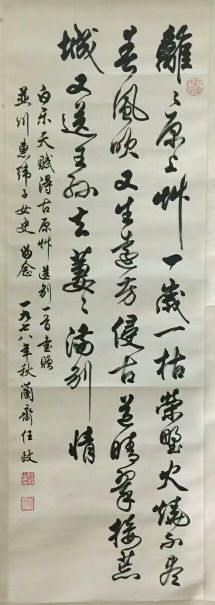 離々原上艸一歲一枯榮野火燒不盡
春風吹又生遠芳侵古道晴翠接荒
城又送王孫去萋々滿別情
白乐天賦得古原艸送別一首書贈
並川惠子女史留念 一九七八年秋蘭齋任政